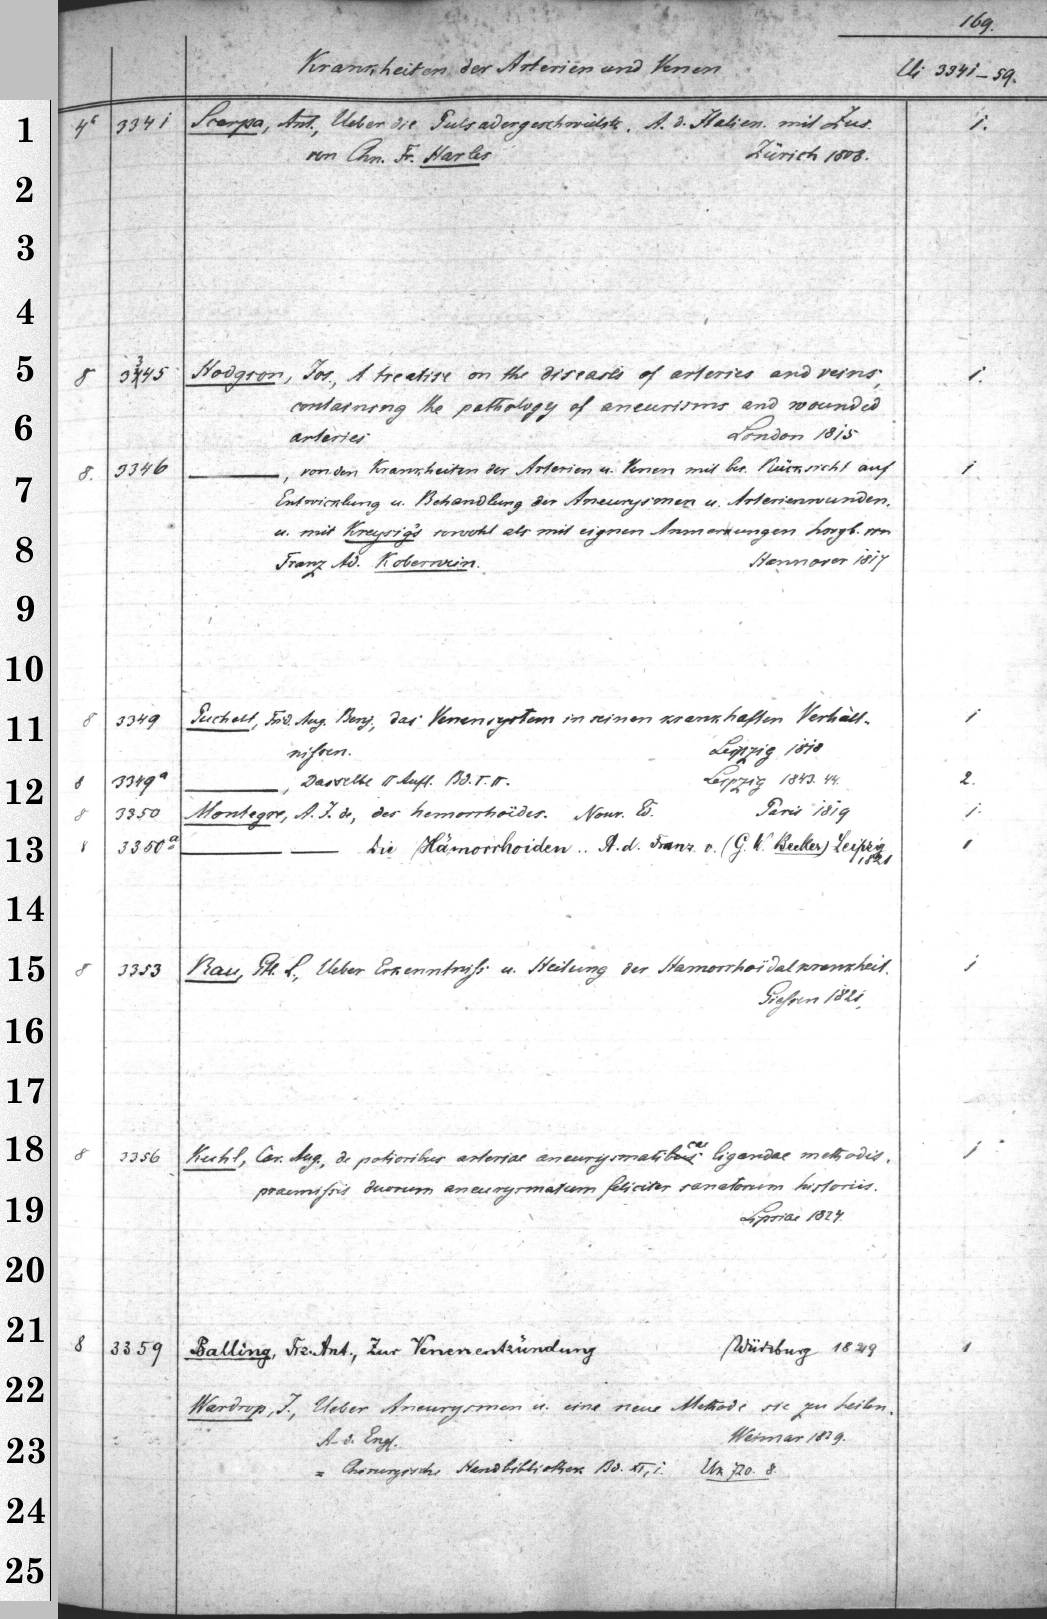 169.
Krankheiten der Arterien und Venen Ui 3341-59.
1 4° 3341 Scarpa, Ant., Ueber die Pulsadergeschwülste. A. d. Italien. mit Zus. 1.
von Chn. Fr. Harles Zürich 1808.
2
3
4
5 8 3345 Hodgson, Jos., A treatise on the diseases of arteries and veins, 1.
containing the pathology of aneurisms and wounded
6 arteries London 1815
7 8. 3346 ———, von den Krankheiten der Arterien u. Venen mit bes. Rücksicht auf 1
Entwicklung u. Behandlung der Aneurysmen u. Arterienwunden.
8 u. mit Kreysig's sowohl als mit eignen Anmerkungen hrsgb. von
Franz Ad. Koberwein. Hannover 1817
9
10
11 8 3349 Puchelt, Frd. Aug. Benj., das Venensystem in seinen krankhaften Verhält- 1
nissen. Leipzig 1818
12 8 3349a ———, Dasselbe II Aufl. Bd. I. II. Leipzig 1843. 44. 2.
8 3350 Montegre, A. J. de, des hemorrhoïdes. Nouv. Ed. Paris 1819 1.
13 8 3350a ——— — Die Hämorrhoiden .. A. d. Franz. v. (G. W. Becker) Leipzig 1821 1
14
15 8 3353 Rau, Gtl. L., Ueber Erkenntniss u. Heilung der Hamorrhoïdalkrankheit. 1
Giessen 1821.
16
17
18 8 3356 Kuhl, Car. Aug., de potioribus arteriae aneurysmaticae ligandae methodis, 1
19 praemissis duorum aneurysmatum feliciter sanatorum historiis.
Lipsiae 1824.
20
21 8 3359 Balling, Frz. Ant., Zur Venenentzündung Würzburg 1829 1
22 Wardrop, J., Ueber Aneurysmen u. eine neue Methode sie zu heilen.
23 A. d. Engl. Weimar 1829.
= Chirurgische Handbibliothek Bd. XI, 1. Un 720. 8.
24
25